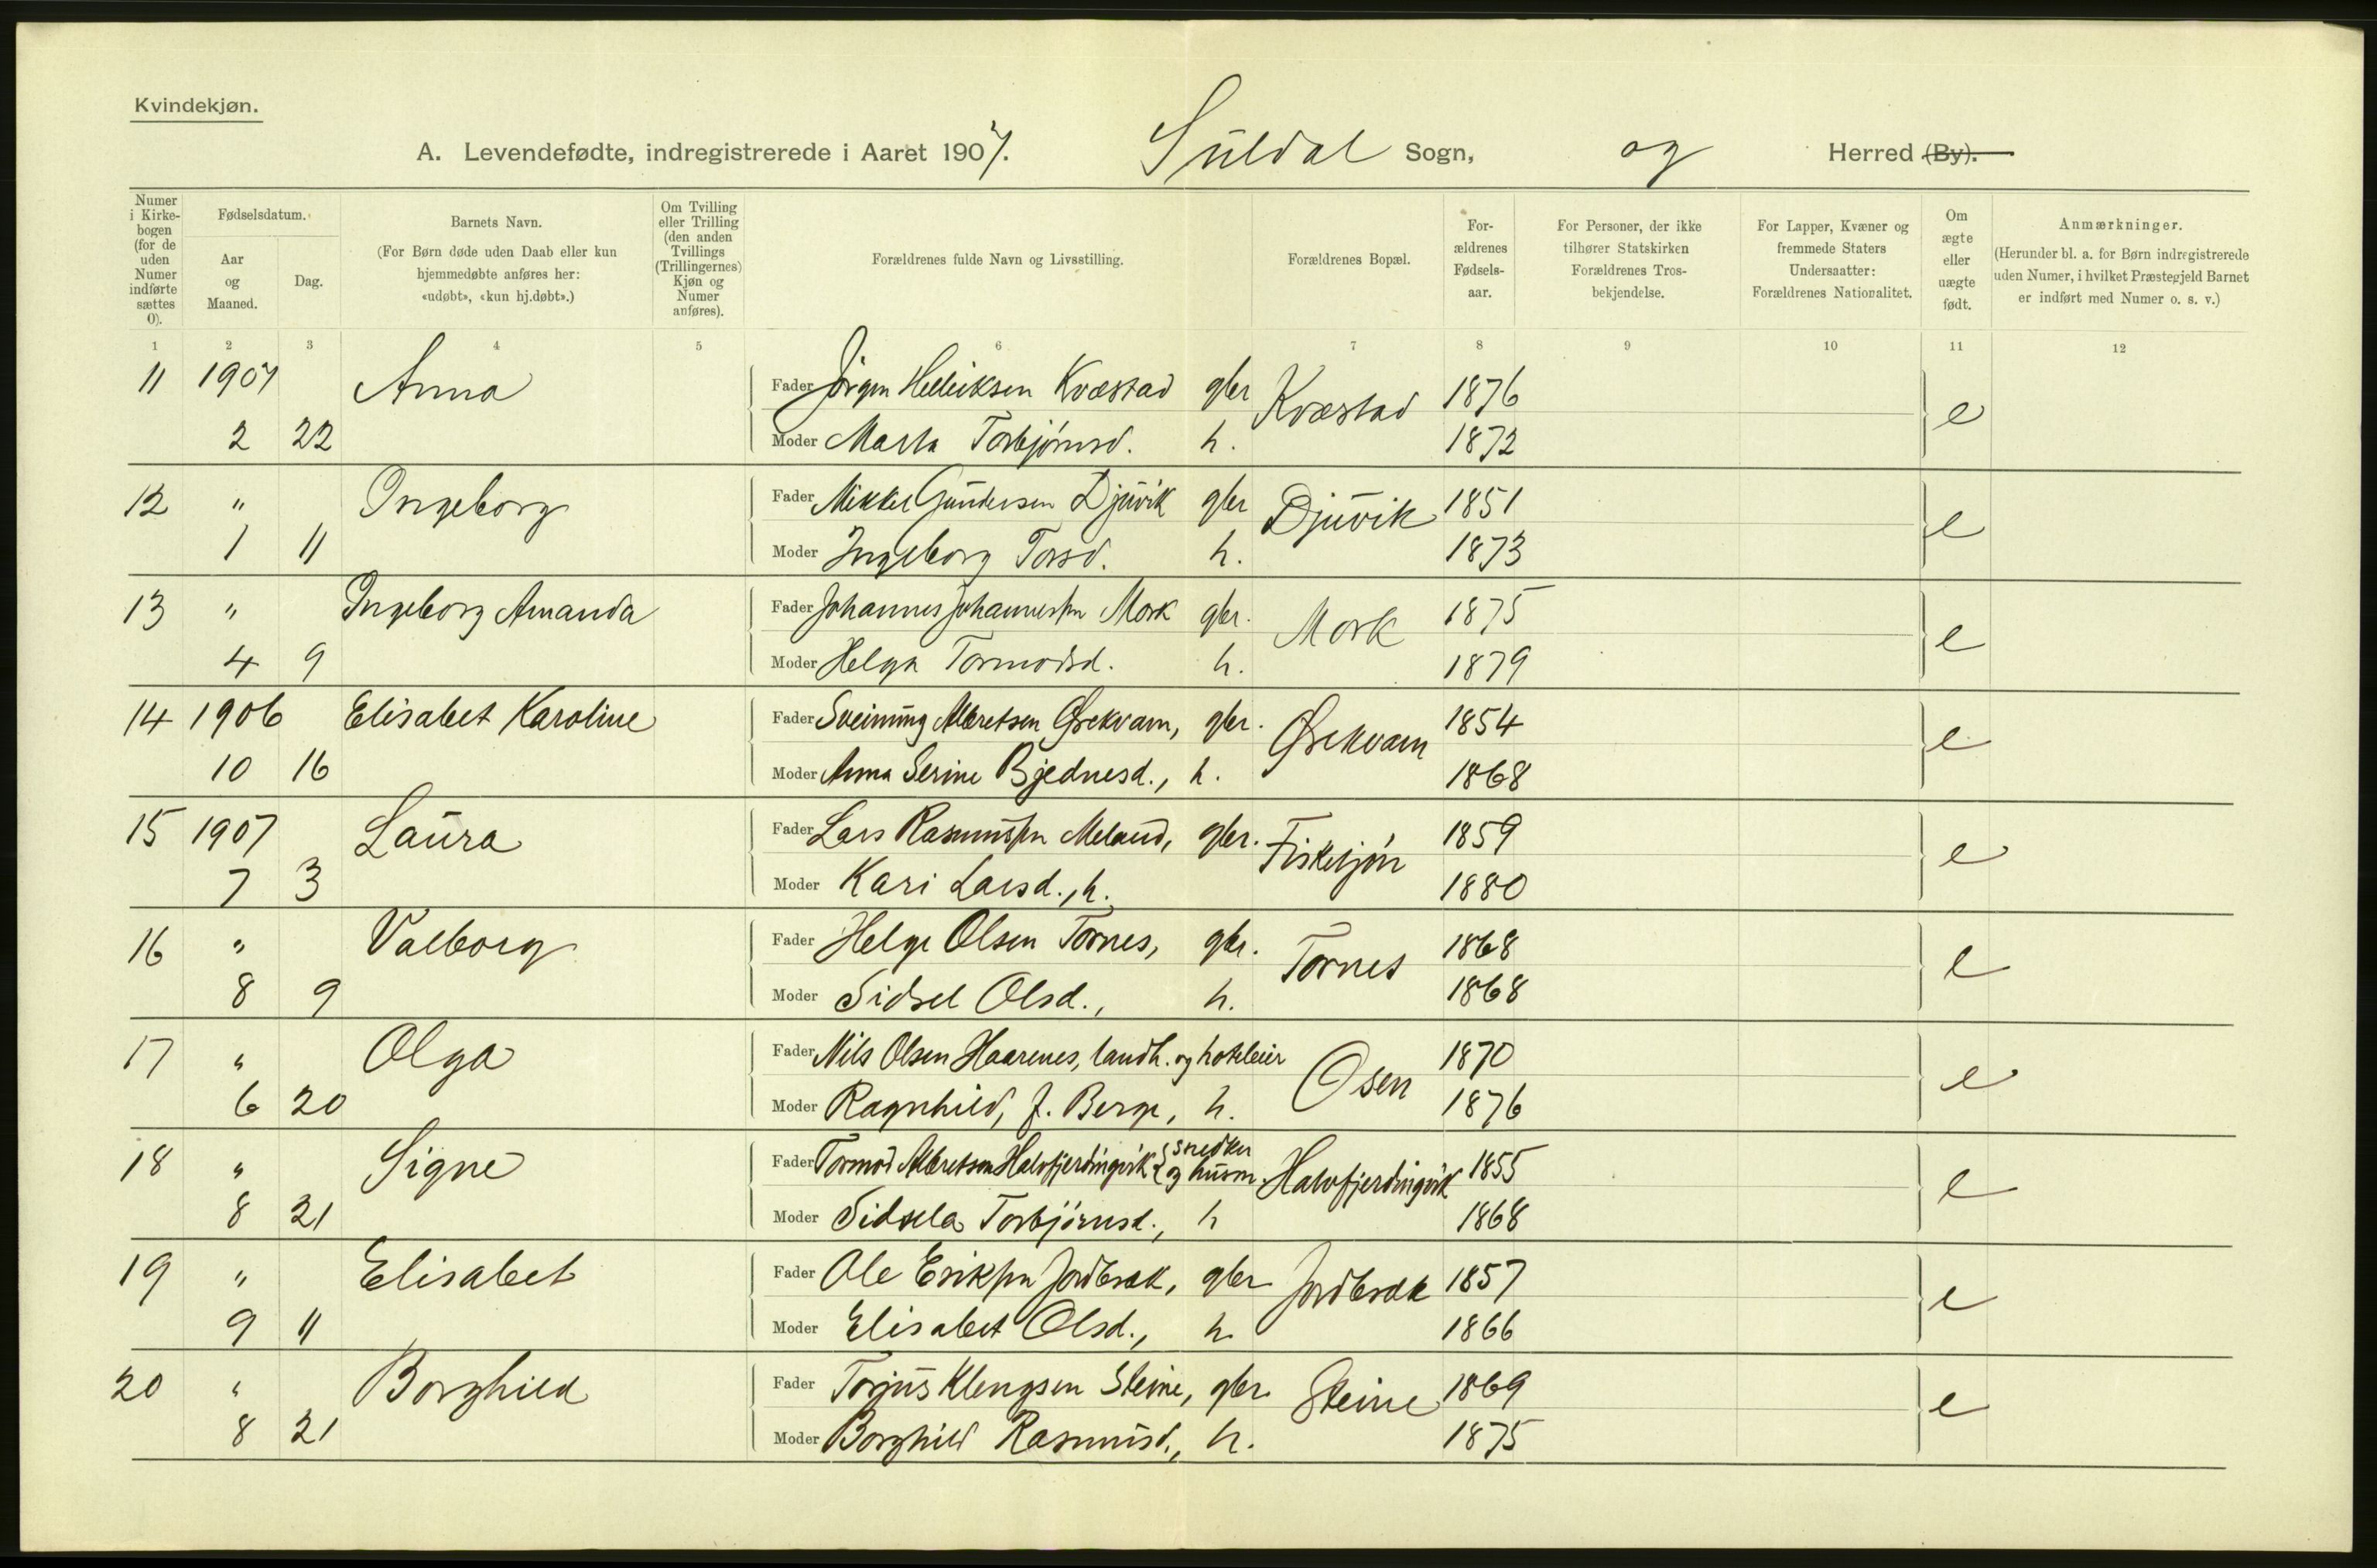 Kvindekjøn.
A. Levendefødte, indregistrerede i Aaret 1907. Suldal Sogn, og Herred (By).
Numer i Kirkebogen (for de uden Numer indførte sættes 0).
Fødselsdatum.
Aar og Maaned.
Dag.
Barnets Navn.
(For Børn døde uden Daab eller kun hjemmedøbte anføres her: «udøbt», «kun hj.døbt».)
Om Tvilling eller Trilling (den anden Tvillings (Trillingernes) Kjøn og Numer anføres).
Forældrenes fulde Navn og Livsstilling.
Forældrenes Bopæl.
For-ældrenes Fødsels-aar.
For Personer, der ikke tilhører Statskirken Forældrenes Tros-bekjendelse.
For Lapper, Kvæner og fremmede Staters Undersaatter: Forældrenes Nationalitet.
Om ægte eller uægte født.
Anmærkninger.
(Herunder bl. a. for Børn indregistrerede uden Numer, i hvilket Præstegjeld Barnet er indført med Numer o. s. v.)
1 2 3 4 5 6 7 8 9 10 11 12
11 1907 Anna Fader Jörgen Helleiksen Kvæstad gbr Kvæstad 1876 e
2 22 Moder Marta Torbjörnsd. h. 1872
12 " Ingeborg Fader Mikkel Gundersen Djuvik gbr Djuvik 1851 e
1 11 Moder Ingeborg Torsd. h. 1873
13 " Ingeborg Amanda Fader Johannes Johannessen Mork gbr. Mork 1875 e
4 9 Moder Helga Tormodsd. h. 1879
14 1906 Elisabet Karoline Fader Sveinung Albretsen Ørekvam, gbr. Ørekvam 1854 e
10 16 Moder Anna Serine Bjednesd., h. 1868
15 1907 Laura Fader Lars Rasmussen Meland, gbr. 1859 e
7 3 Moder Kari Larsd., h. 1880
16 " Valborg Fader Helge Olsen Tornes, gbr. Tornes 1868 e
8 9 Moder Sidsel Olsd., h. 1868
17 " Olga Fader Nils Olsen Haarenes, landh. og hoteleier Osen 1870 e
6 20 Moder Ragnhild, f. Berge, h. 1876
18 " Signe Fader Tormod Albretsen Halvfjerdingvik { snedker og husm. Halvfjerdingvik 1855 e
8 21 Moder Sidsela Torbjörnsd., h 1868
19 " Elisabet Fader Ole Eriksen Jordbræk, gbr Jordbræk 1857 e
9 11 Moder Elisabet Olsd., h. 1866
20 " Borghild Fader Torjus Klengsen Steine, gbr. Steine 1869 e
8 21 Moder Borghild Rasmusd., h. 1875